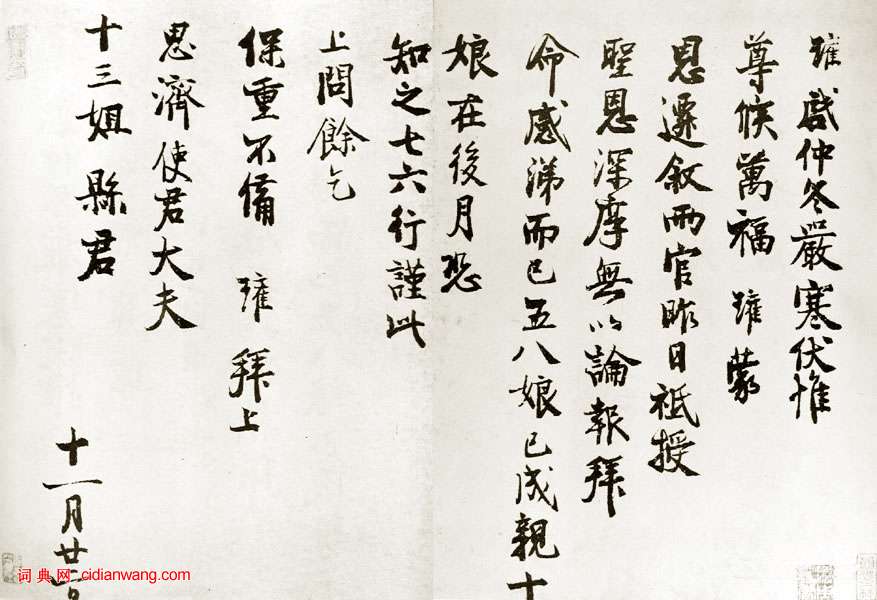 瓘啟仲冬嚴寒伏惟
尊候萬福 瓘蒙
恩遷敘兩官昨日祗授
聖恩深厚無以論報拜
命感涕而已五八娘已成親十
娘在後月恐
知之七六行謹此
上問餘乞
保重不備 瓘 拜上
思濟使君大夫
十三姐縣君
十一月廿
词典网 cidianwang.com